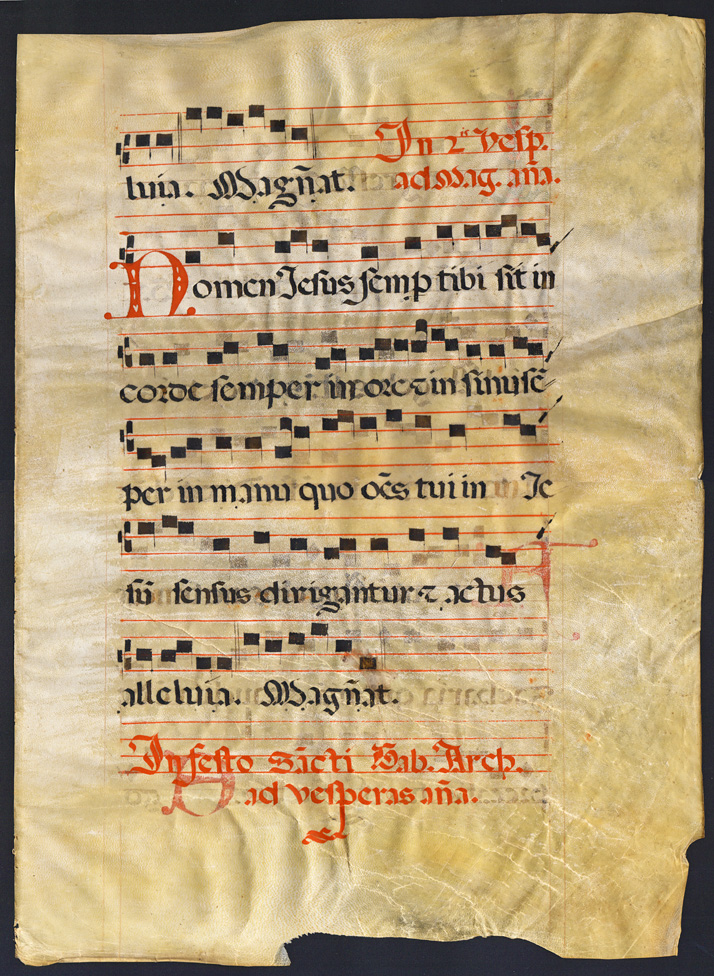 luia. Magñat. In 2.is Vesp.
ad Mag. aña.
Nomen Jesus semp tibi sit in
corde semper in ore ⁊ in sinu sē
per in manu quo oēs tui in Je
sū sensus dirigantur ⁊ actus
alleluia. Magñat.
In festo Sācti Gab. Arch.
ad vesperas aña.